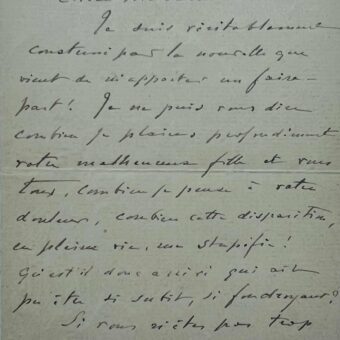 Je suis véritablement
consterné par la nouvelle que
vient de m'apporter un faire-
part! Je ne puis vous dire
combien je plains profondément
votre malheureuse fille et vous
tous, combien je pense à votre
douleur, combien cette disparition,
en pleine vie, me stupéfie!
Qu'est-il donc arrivé qui ait
pu être si subit, si foudroyant?
Si vous n'êtes pas trop